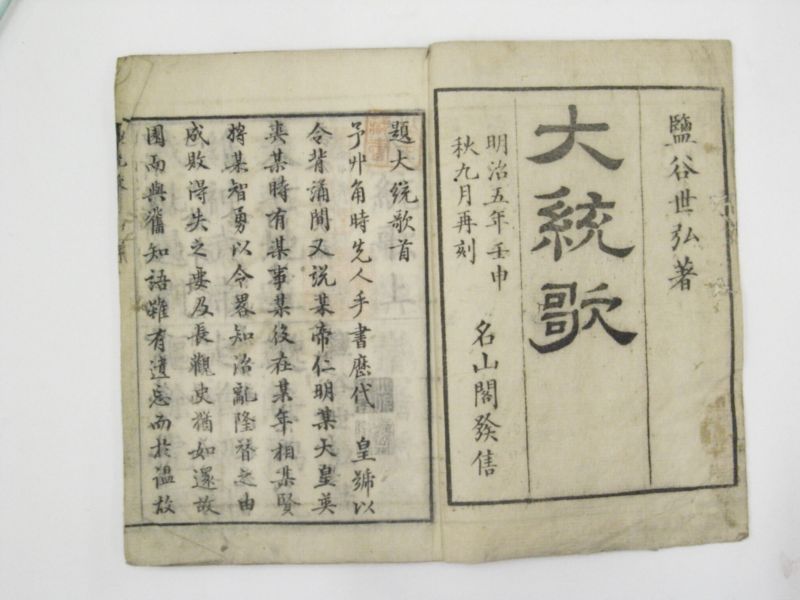 鹽谷世弘著
大統歌
明治五年壬申
秋九月再刻
名山閣發售
題大統歌首
予丱角時先人手書歷代 皇號以
令背誦間又説某帝仁明某天皇英
喪某時有某事某役在某年相某賢
將某智勇以令畧知治亂隆替之由
成敗得失之要及長觀史猶如還故
園而與舊知語雖有遺忘而於温故